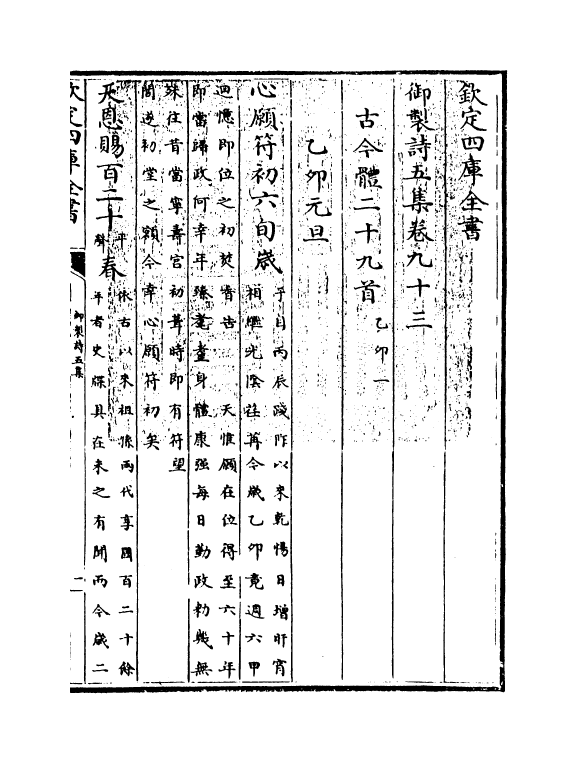 欽定四庫全書
御製詩五集卷九十三
古今體二十九首 乙卯一
乙卯元旦
心願符初六旬歲
予自丙辰踐阼以來乾惕日增旰宵
相繼光陰荏苒今歲乙卯竟週六甲
迴憶即位之初焚香告 天惟願在位得至六十年
即當歸政何幸年臻耄耋身體康强每日勤政勅幾無
殊往昔當寧壽宮初葺時即有符望
閣遂初堂之額今幸心願符初矣
天恩賜百二十平聲春
古以來祖孫兩代享國百二十餘
年者史牒具在未之有聞而今歲二
欽定四庫全書
御製詩五集
一